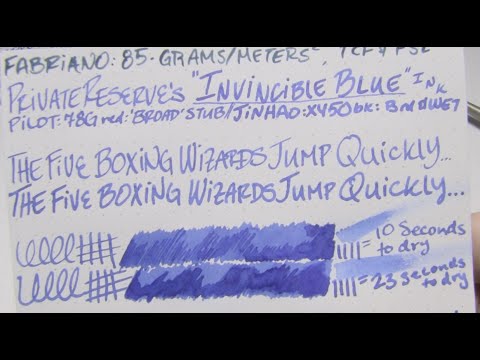 FABRIANO: 85. GRAMS/METERS², TCF & FSC
PRIVATE RESERVE'S "INVINCIBLE BLUE" INK
PILOT: 78G red: 'BROAD' STUB/JINHAO: X450 bk: Brd WET
THE FIVE BOXING WIZARDS JUMP QUICKLY...
THE FIVE BOXING WIZARDS JUMP QUICKLY...
= 10 Seconds to dry
= 23 Seconds to dry